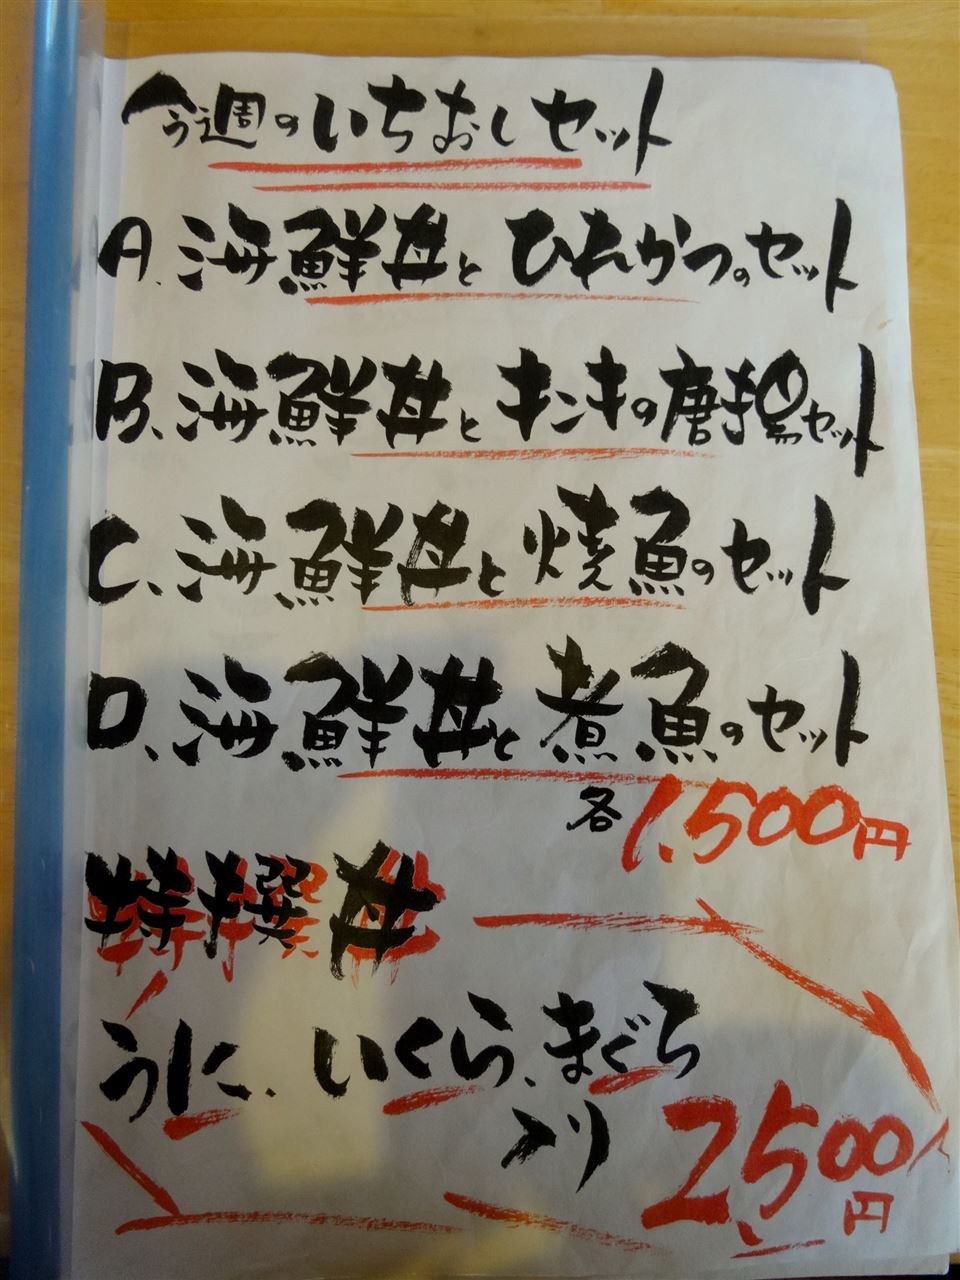 今週のいちおしセット
A、海鮮丼とひれかつのセット
B、海鮮丼とキンキの唐揚セット
C、海鮮丼と焼魚のセット
D、海鮮丼と煮魚のセット
各1,500円
特撰丼
うに、いくら、まぐろ
入り
2,500円